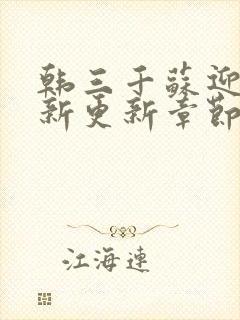 韩三千苏迎
新更新章节
江海连